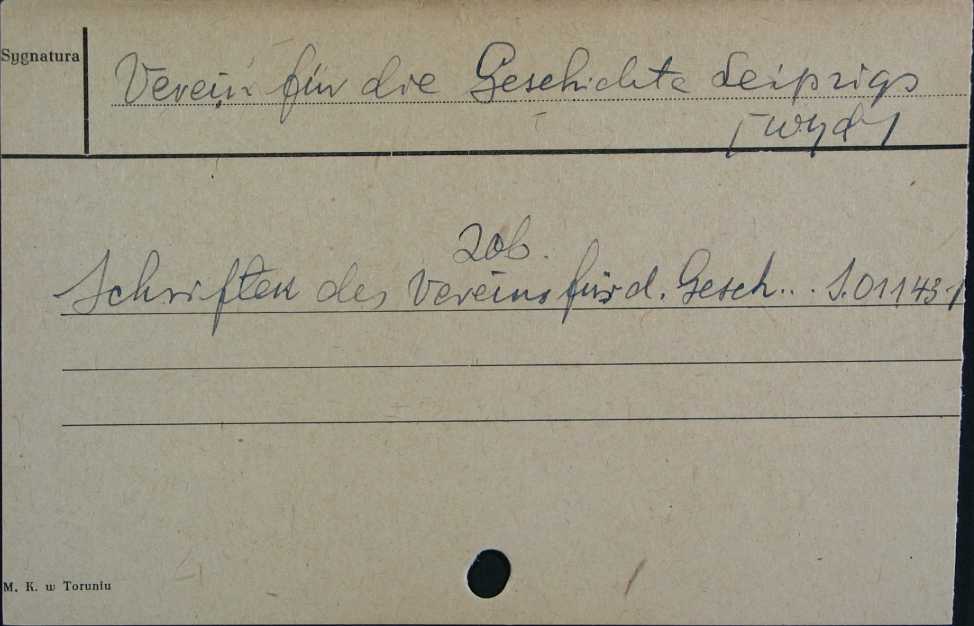 Sygnatura
Verein für die Geschichte Leipzigs
[wyd]
zob.
Schriften des Vereins für d. Gesch... S.01143/
M. K. w Toruniu